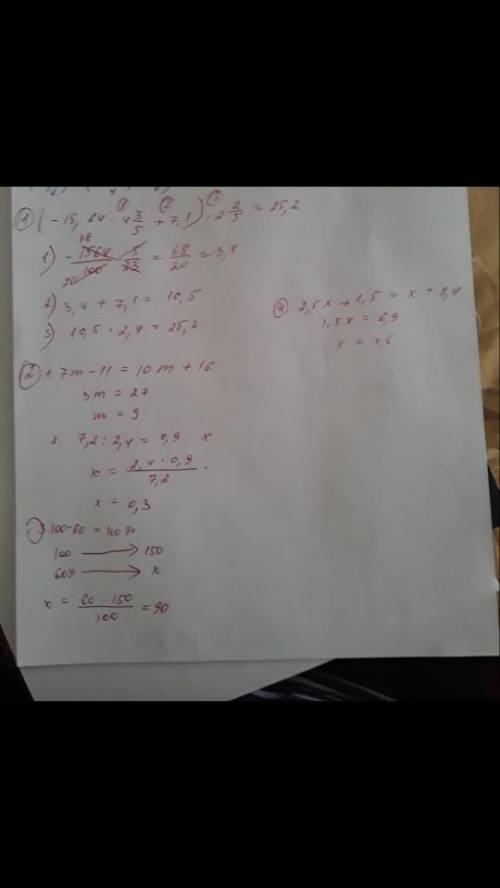 ① (-15,64 : 4 3/5 + 7,1) · 2 2/5 = 25,2
1) - 1564/100 · 5/23 = 68/20 = 3,4
2) 3,4 + 7,1 = 10,5
3) 10,5 · 2,4 = 25,2
② 1. 7m - 11 = 10m + 16
3m = 27
m = 9
2. 7,2 : 2,4 = 0,9 · x
x = 2,4 · 0,9 / 7,2
x = 0,3
100-60 = 40%
100 → 150
60% → x
x = 60 · 150 / 100 = 90
④ 2,5x + 1,5 = x + 8,4
1,5x = 6,9
x = 4,6